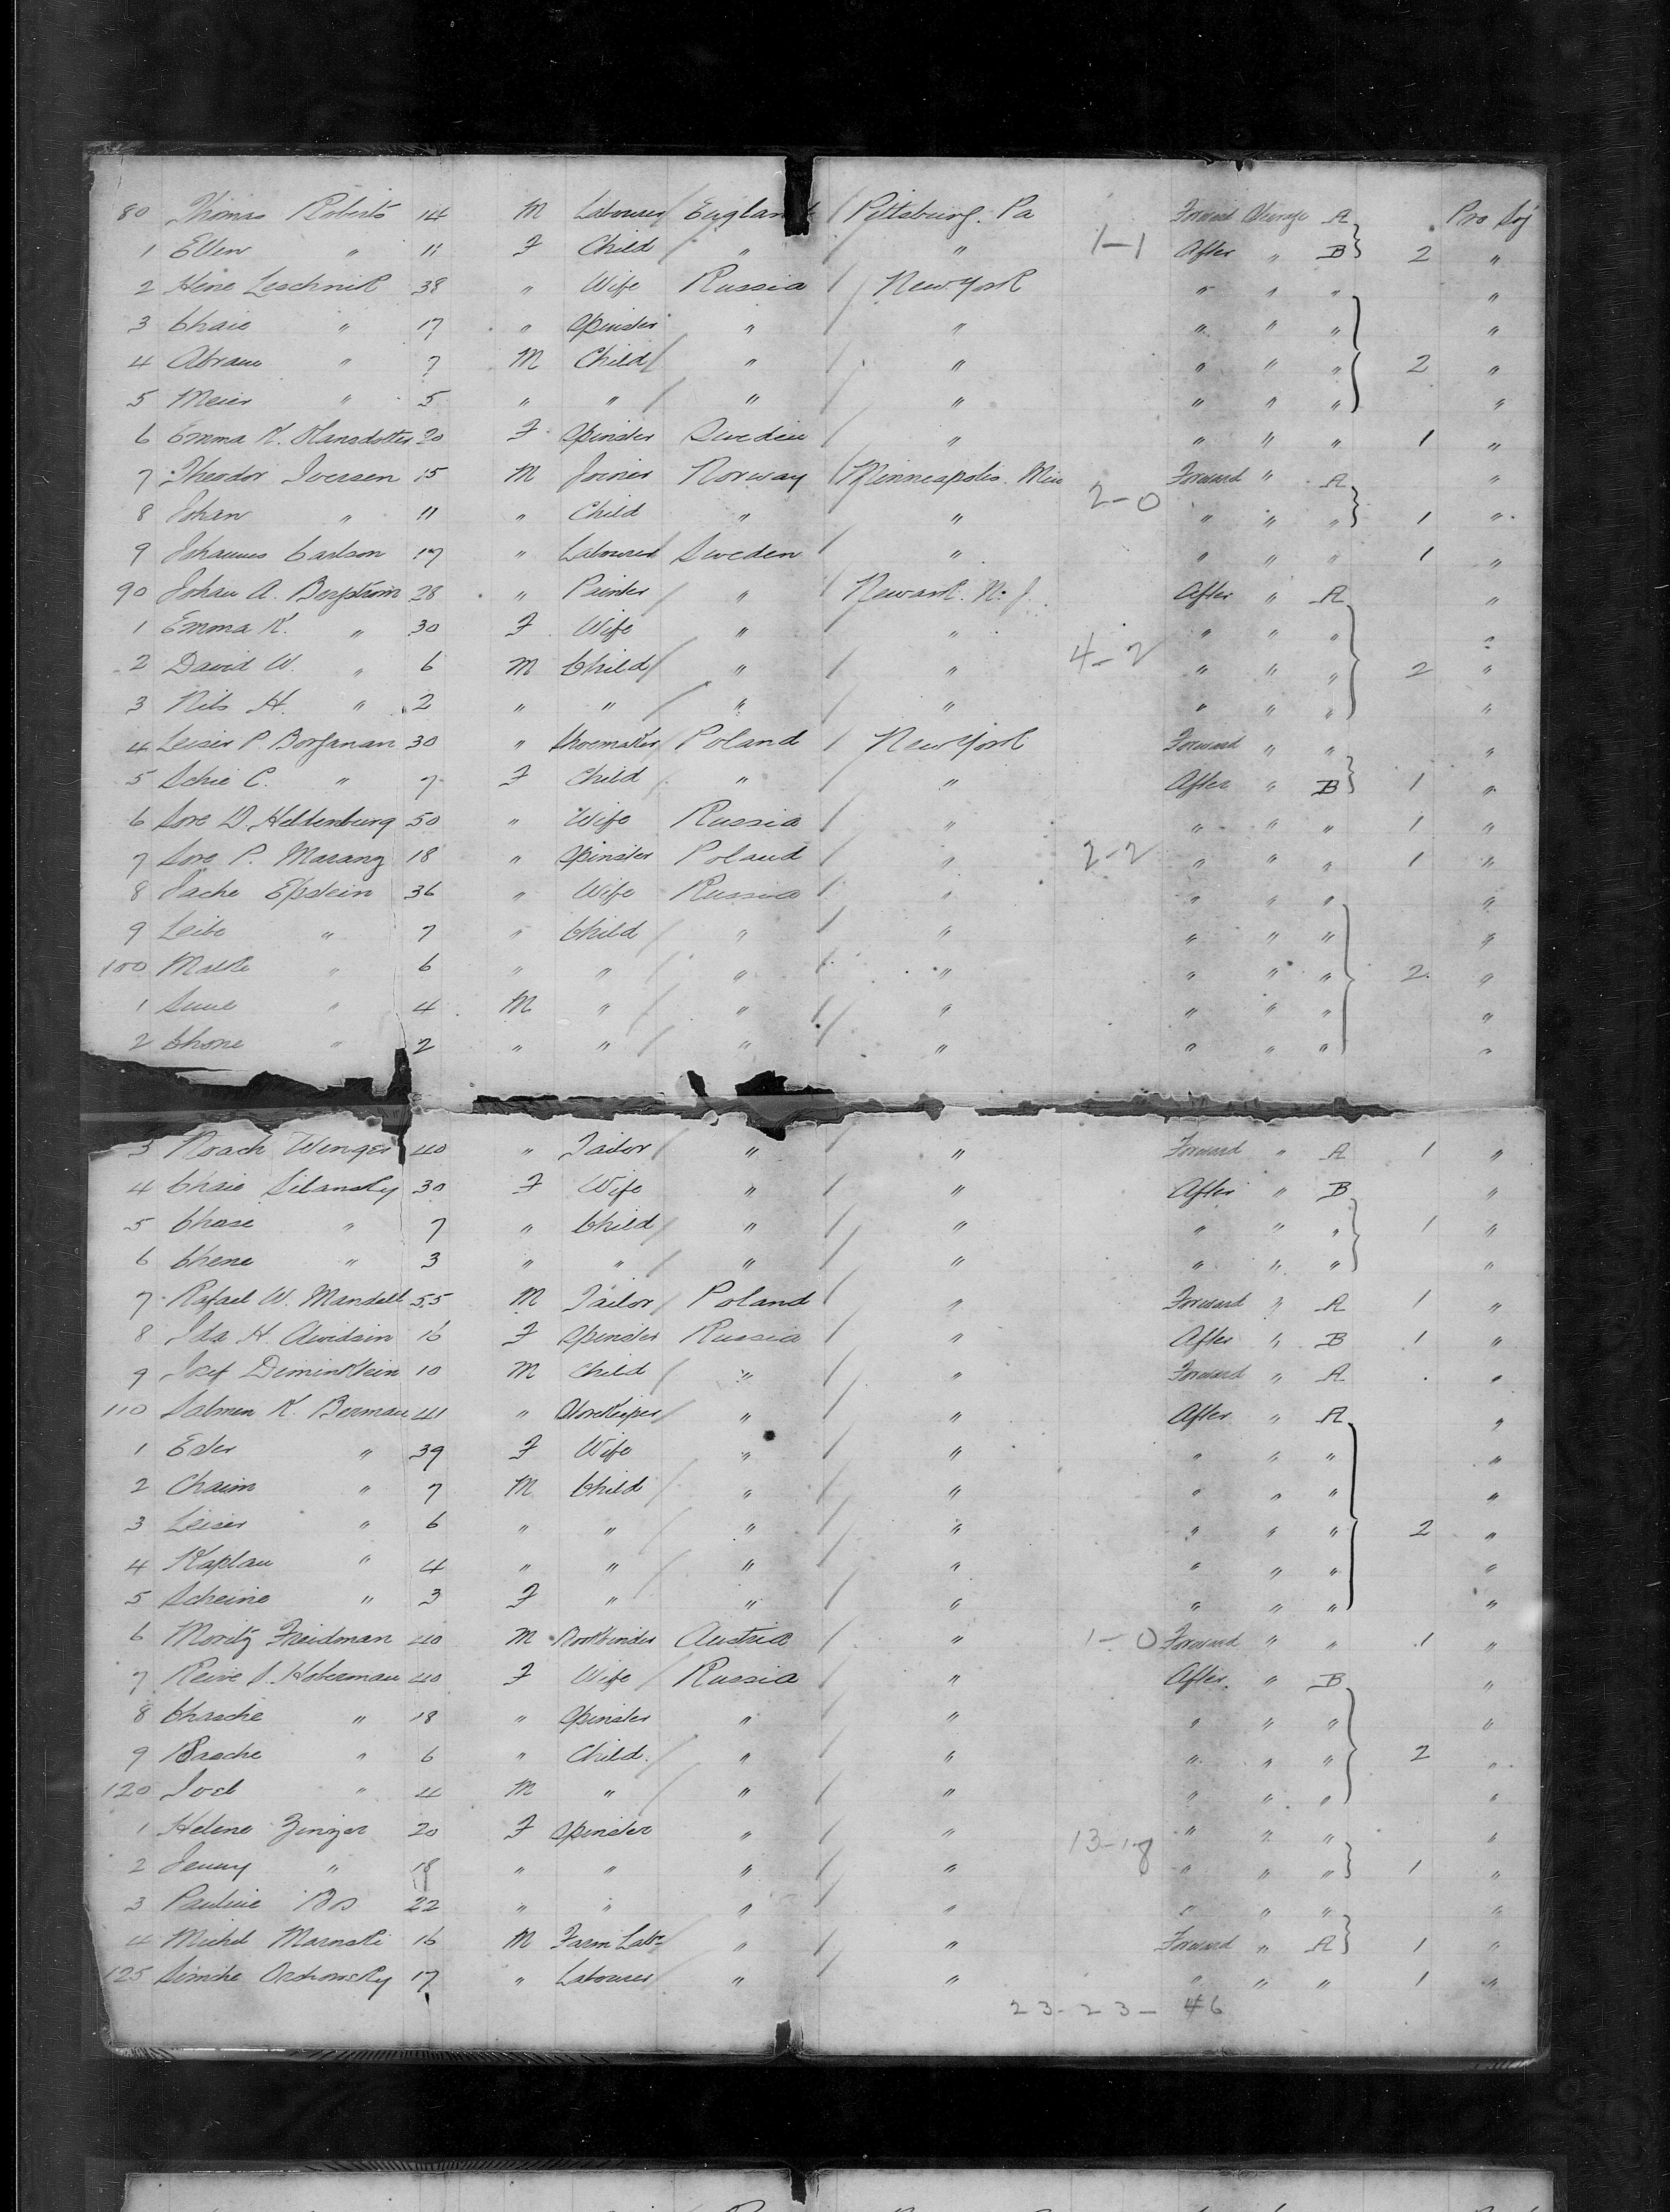 80 Thomas Roberts 14 M Labourer England Pittsburg. Pa Forward Steerage A Pro Soj
1 Ellen " 11 F Child " " 1-1 After " B 2 "
2 Hene Leschnik 38 " Wife Russia New York " " " "
3 Chaie " 17 " Spinster " " " " " "
4 Abram " 7 M Child " " " " " 2 "
5 Meier " 5 " " " " " " " "
6 Emma K. Hansdotter 20 F Spinster Sweden " " " " 1 "
7 Theodor Iversen 15 M Joiner Norway Minneapolis. Min Forward " A "
8 Johan " 11 " Child " " 2-0 " " " 1 "
9 Johannes Carlson 17 " Labourer Sweden " " " " 1 "
90 Johan A. Bergstrom 28 " Painter " Newark. N. J. After " A "
1 Emma K. " 30 F Wife " " " " " "
2 David W. " 6 M Child " " 4-2 " " " 2 "
3 Nils H. " 2 " " " " " " " "
4 Leiser P. Borganan 30 " Shoemaker Poland New York Forward " " "
5 Schie C. " 7 F Child " " After " B 1 "
6 Sore D. Heldenburg 50 " Wife Russia " " " " 1 "
7 Sore P. Marang 18 " Spinster Poland " 2-2 " " " 1 "
8 Jache Epstein 36 " Wife Russia " " " " "
9 Leibe " 7 " Child " " " " " "
100 Malke " 6 " " " " " " " 2 "
1 " 4 M " " " " " " "
2 Chone " 2 " " " " " " " "
3 Noach Wenger 40 " Tailor " " Forward " A 1 "
4 Chaie Silansky 30 F Wife " " After " B "
5 Chase " 7 " Child " " " " " 1 "
6 Chene " 3 " " " " " " " "
7 Rafael W. Mandell 55 M Tailor Poland " Forward " A 1 "
8 Ida H. Awidsin 16 F Spinster Russia " After " B 1 "
9 Josef Deminklein 10 M Child " " Forward " A "
110 Salmen K. Berman 41 " Storekeeper " " After " A "
1 Ester " 39 F Wife " " " " " "
2 Chaim " 7 M Child " " " " " "
3 Leiser " 6 " " " " " " " 2 "
4 Kaplan " 4 " " " " " " " "
5 Scheine " 3 F " " " " " " "
6 Moritz Freidman 40 M Bookbinder Austria " 1-0 Forward " " 1 "
7 Reive S. Hoberman 40 F Wife Russia " After " B "
8 Chasche " 18 " Spinster " " " " " "
9 Basche " 6 " Child " " " " " 2 "
120 Joel " 4 M " " " " " " "
1 Helene Zinger 20 F Spinster " " " " " "
2 Jenny " 18 " " " " 13-18 " " " 1 "
3 Pauline 22 " " " " " " " "
4 Michel Marnski 16 M Farm Labr " " Forward " A 1 "
125 Simche Ordromsky 17 " Labourer " " " " " 1 "
23-23- 46